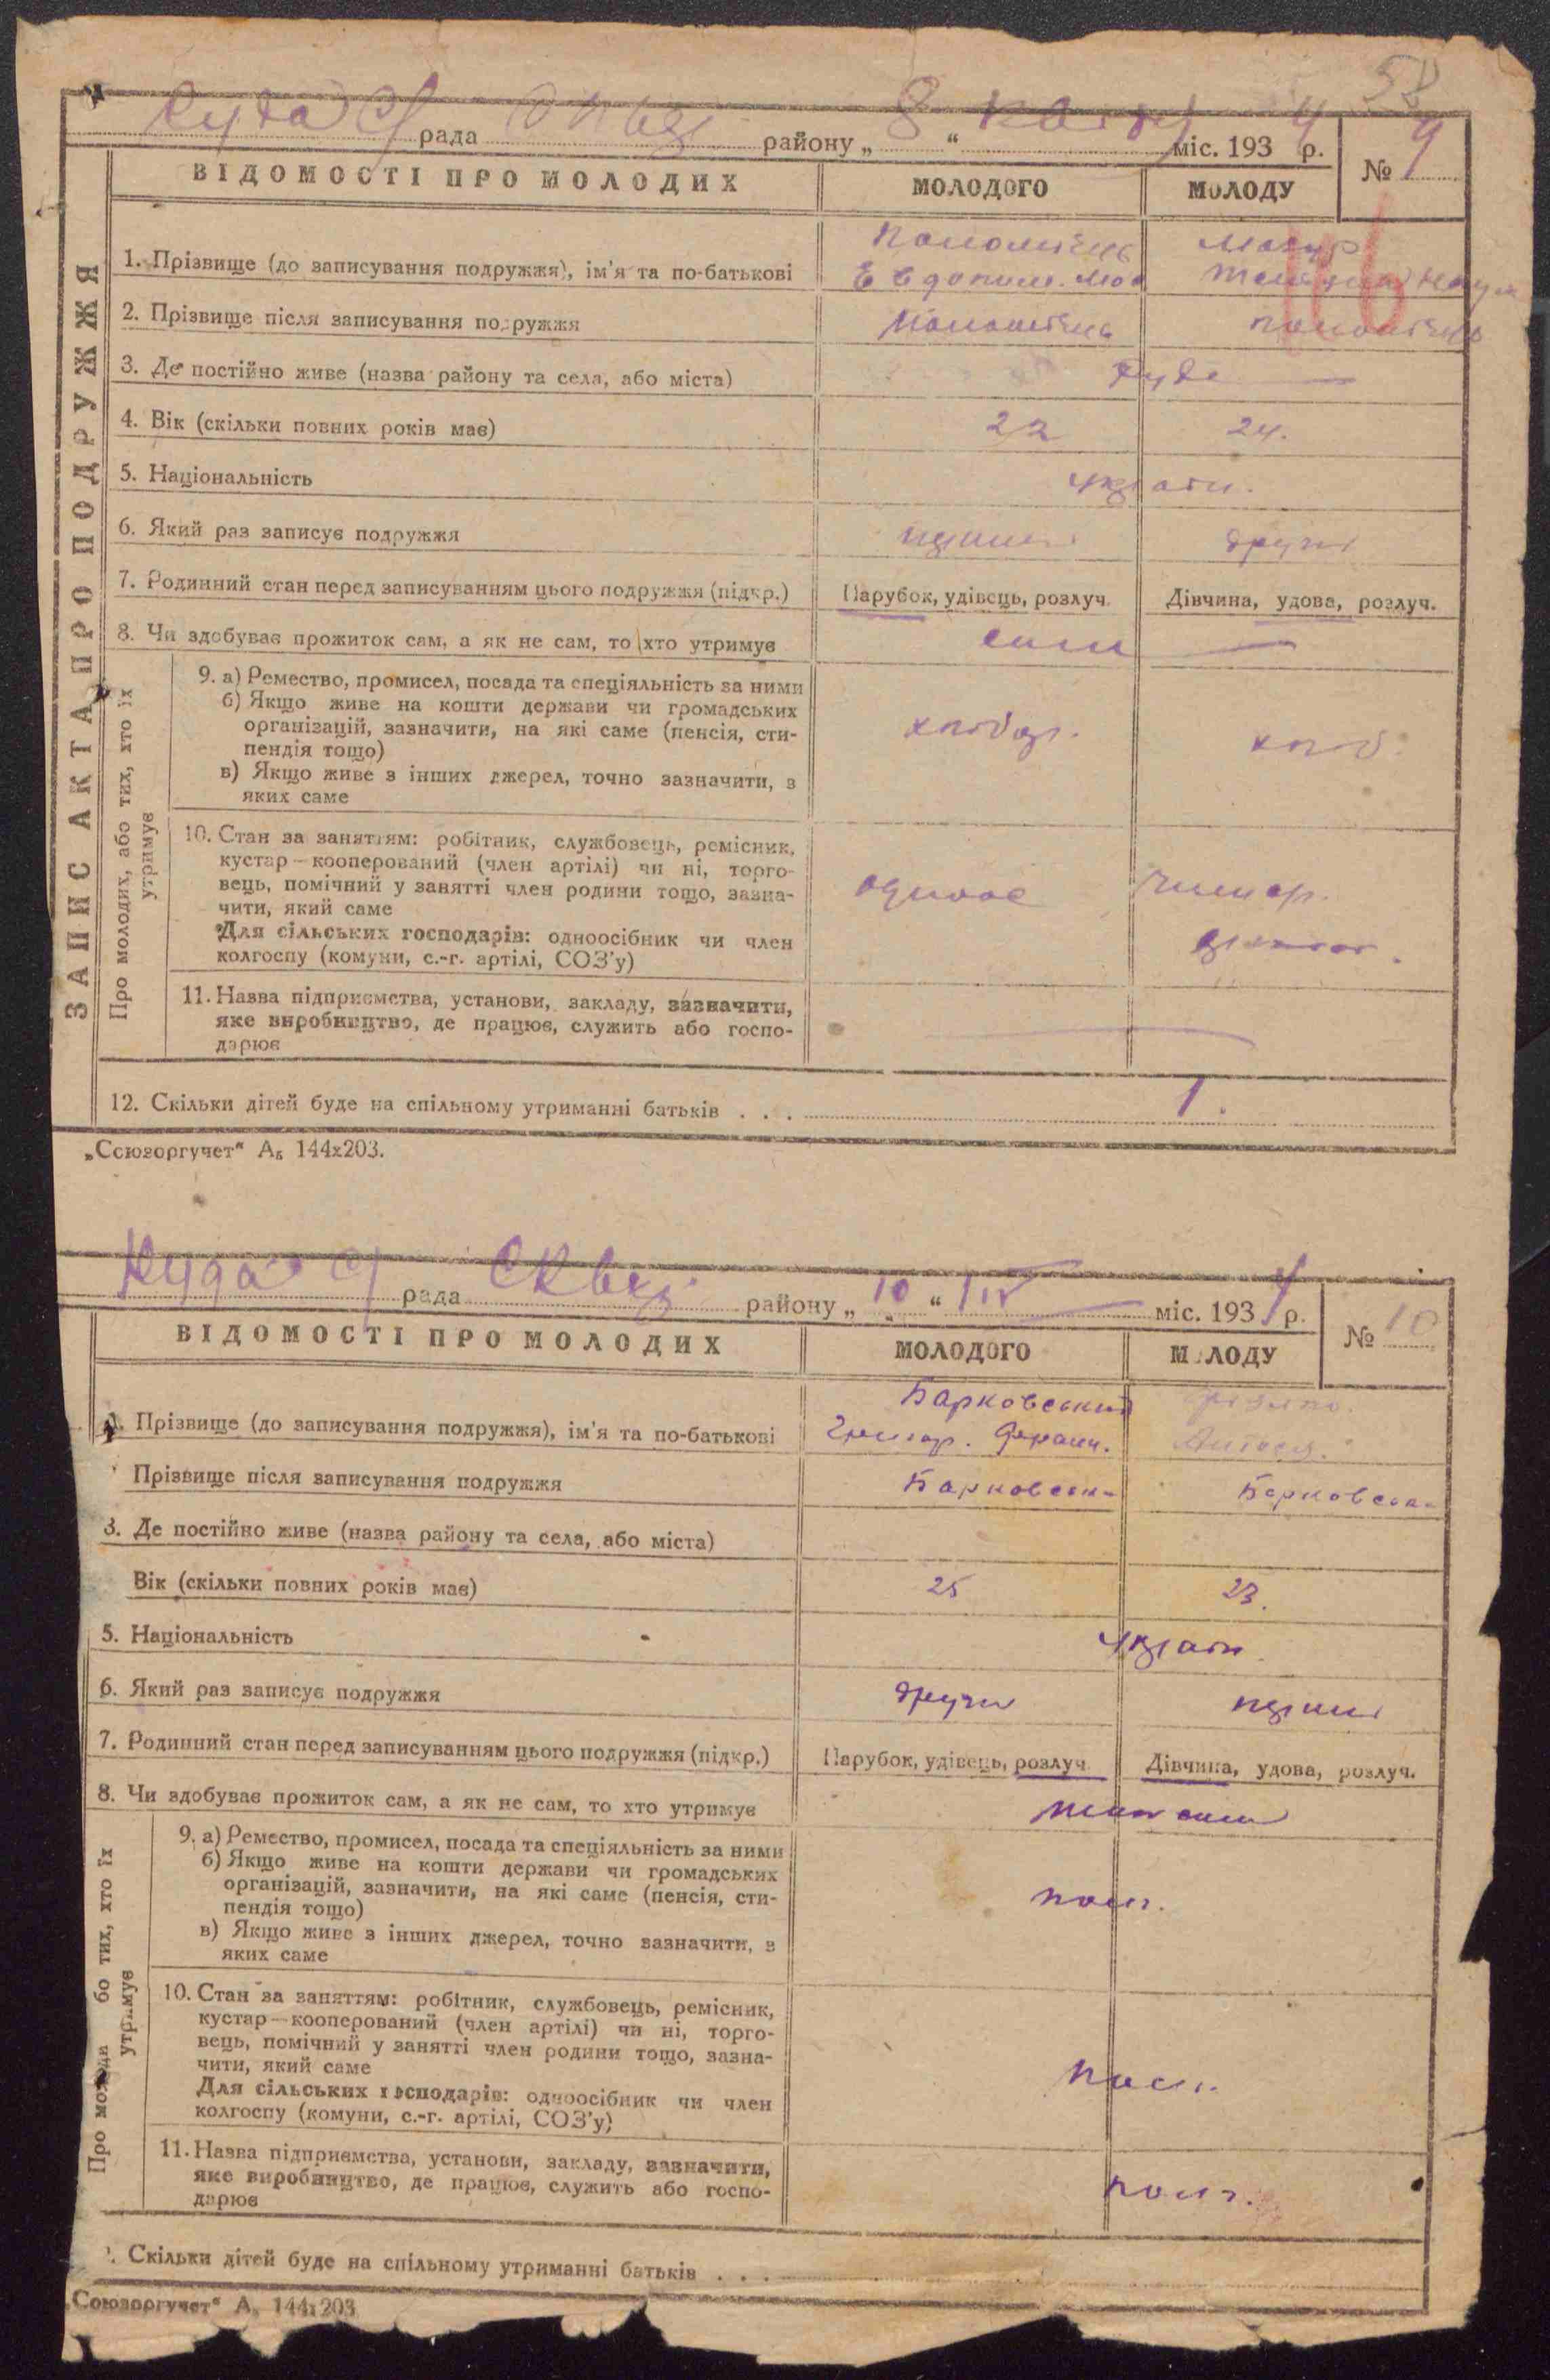 58
рада району „ 8 “ міс. 193 4 р. № 9
ВІДОМОСТІ ПРО МОЛОДИХ МОЛОДОГО МОЛОДУ
ЗАПИС АКТА ПРО ПОДРУЖЖЯ
1. Прізвище (до записування подружжя), ім'я та по-батькові Мазур
2. Прізвище після записування подружжя
3. Де постійно живе (назва району та села, або міста) Руда —
4. Вік (скільки повних років має) 22 24.
5. Національність
6. Який раз записує подружжя
7. Родинний стан перед записуванням цього подружжя (підкр.) Парубок, удівець, розлуч. Дівчина, удова, розлуч.
8. Чи здобуває прожиток сам, а як не сам, то хто утримує сам —
Про молодих, або тих, хто їх
утримує
9. а) Ремество, промисел, посада та спеціяльність за ними
б) Якщо живе на кошти держави чи громадських
організацій, зазначити, на які саме (пенсія, сти-
пендія тощо)
в) Якщо живе з інших джерел, точно зазначити, з
яких саме
10. Стан за заняттям: робітник, службовець, ремісник,
кустар—кооперований (член артілі) чи ні, торго-
вець, помічний у занятті член родини тощо, зазна-
чити, який саме
Для сільських господарів: одноосібник чи член
колгоспу (комуни, с.-г. артілі, СОЗ'у)
11. Назва підприємства, установи, закладу, зазначити,
яке виробництво, де працює, служить або госпо-
дарює
12. Скільки дітей буде на спільному утриманні батьків . . . 1.
„Союзоргучет“ А₅ 144х203.
рада Сквир району „ 10 “ IV міс. 193 4 р. № 10
ВІДОМОСТІ ПРО МОЛОДИХ МОЛОДОГО МОЛОДУ
Прізвище (до записування подружжя), ім'я та по-батькові Барковський
Прізвище після записування подружжя Барковськ Барковськ
3. Де постійно живе (назва району та села, або міста)
Вік (скільки повних років має) 25 23.
5. Національність
6. Який раз записує подружжя
7. Родинний стан перед записуванням цього подружжя (підкр.) Парубок, удівець, розлуч. Дівчина, удова, розлуч.
8. Чи здобуває прожиток сам, а як не сам, то хто утримує
Про молоди бо тих, хто їх
утримує
9. а) Ремество, промисел, посада та спеціяльність за ними
б) Якщо живе на кошти держави чи громадських
організацій, зазначити, на які саме (пенсія, сти-
пендія тощо)
в) Якщо живе з інших джерел, точно зазначити, з
яких саме
10. Стан за заняттям: робітник, службовець, ремісник,
кустар—кооперований (член артілі) чи ні, торго-
вець, помічний у занятті член родини тощо, зазна-
чити, який саме
Для сільських господарів: одноосібник чи член
колгоспу (комуни, с.-г. артілі, СОЗ'у)
11. Назва підприємства, установи, закладу, зазначити,
яке виробництво, де працює, служить або госпо-
дарює
Скільки дітей буде на спільному утриманні батьків . . .
„Союзоргучет“ А₅ 144х203